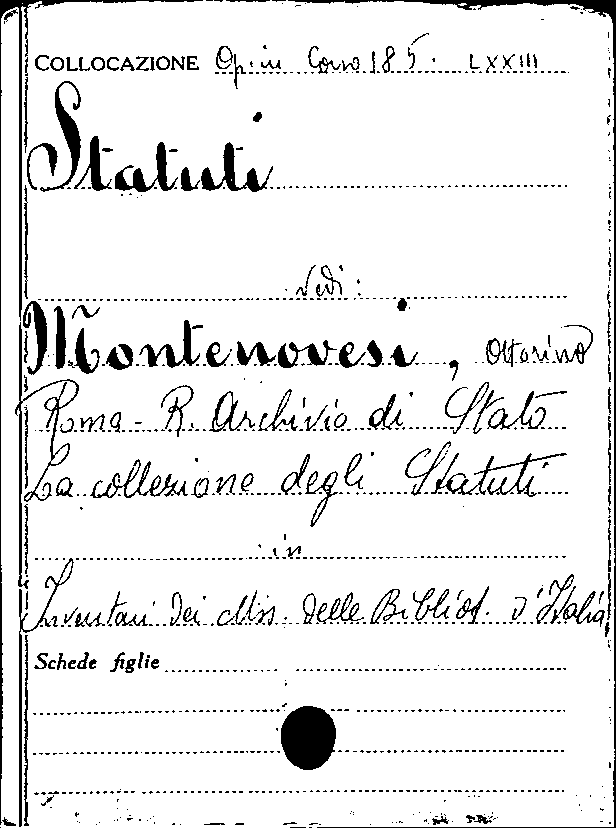 COLLOCAZIONE Op. in Corso 185. LXXIII
Statuti
Vedi:
Montenovesi, Ottorino
Roma - R. Archivio di Stato
La collezione degli Statuti
in
Inventari dei Mss. delle Bibliot. d'Italia,
Schede figlie